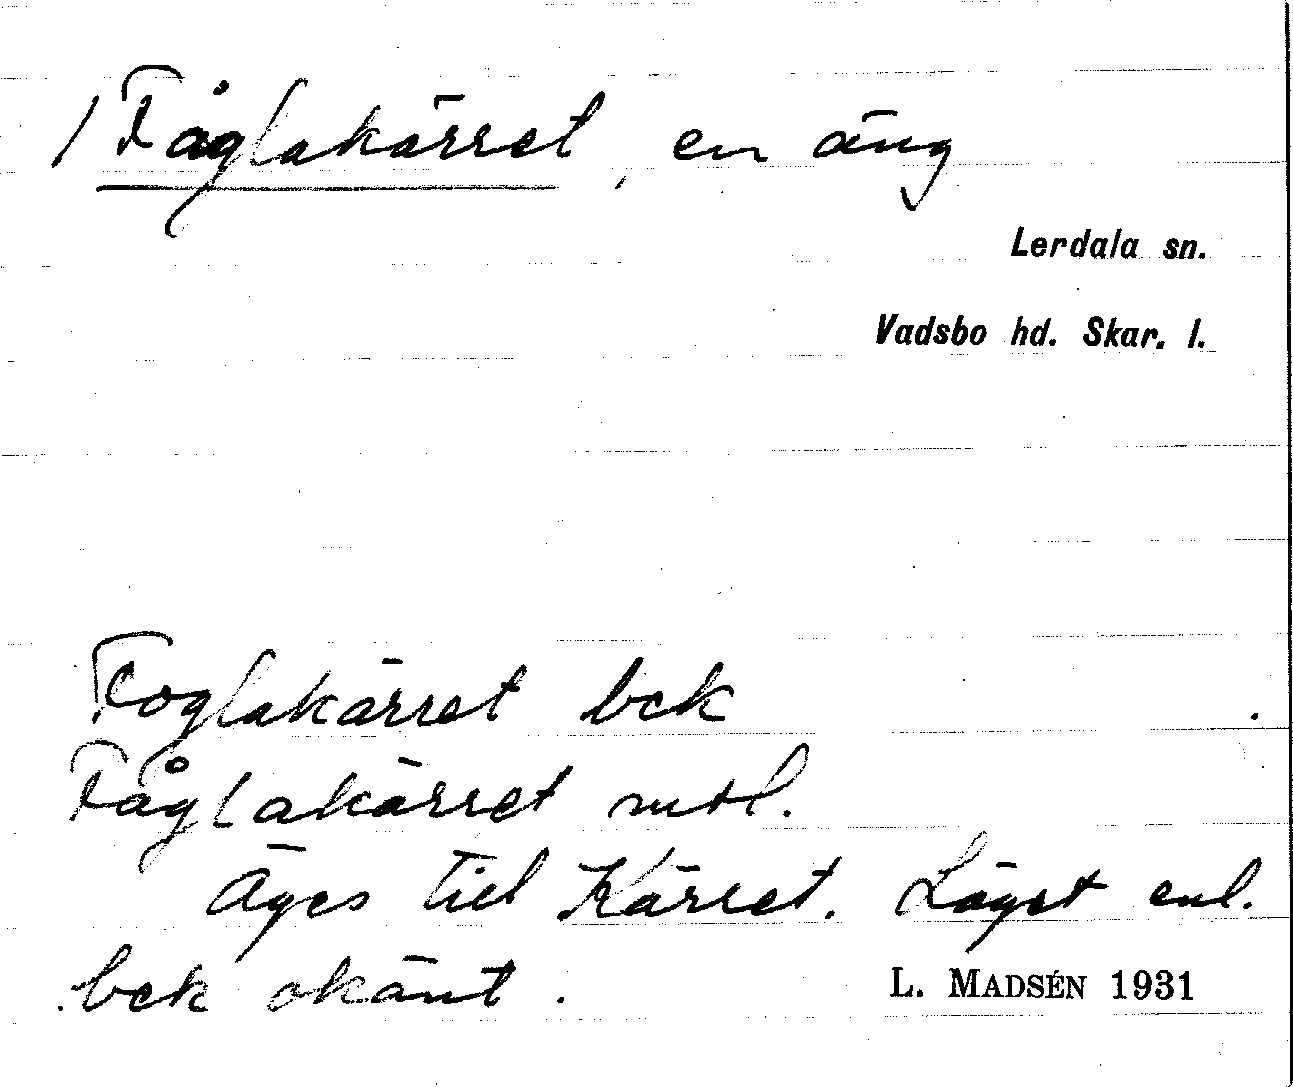 1 Fåglakärret, en äng
Lerdala sn.
Vadsbo hd. Skar. l.
Foglakärret bek
Fåglakärret mtl.
Äges till Kärret. Läget enl.
bek okänt.
L. MADSÉN 1931